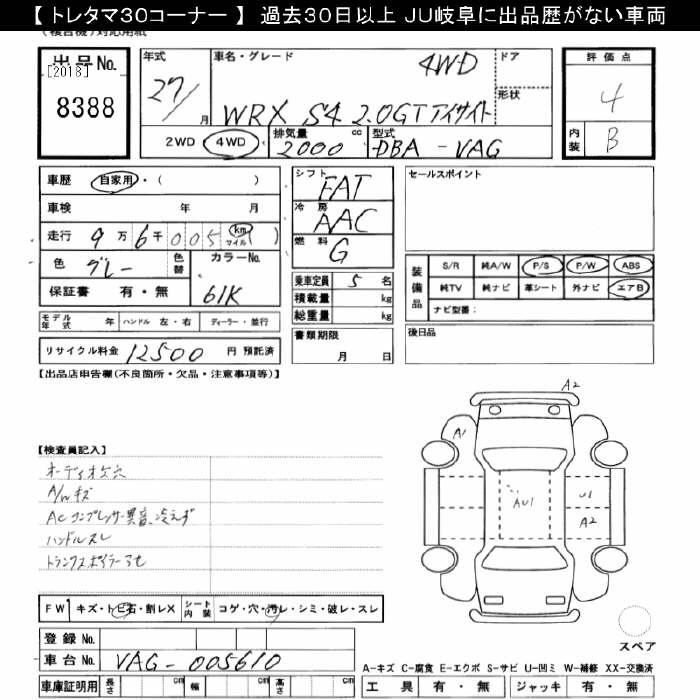 【トレタマ30コーナー】 過去30日以上 JU岐阜に出品歴がない車両
出品No.
[2018]
8388
年式
27/
月
車名・グレード
4WD
ドア
形状
WRX S4 2.0GTアイサイト
2WD
4WD
排気量
2000
cc
型式
DBA-VAG
評価点
4
内装
B
車歴 自家用・( )
車検 年 月
走行 9万6千005 km マイル ( )
色 グレー 色替
カラーNo.
61K
保証書 有・無
モデル年式 年 ハンドル 左・右 ディーラー・並行
リサイクル料金 12500 円 預託済
シフト
FAT
冷房
AAC
燃料
G
乗車定員 5 名
積載量 kg
総重量 kg
書類期限
月 日
セールスポイント
装備品
S/R 純A/W P/S P/W ABS
純TV 純ナビ 革シート 外ナビ エアB
ナビ型番：
後日品
【出品店申告欄(不良箇所・欠品・注意事項等)】
【検査員記入】
オーディオケ穴
A/wキズ
ACコンプレッサー異音、冷えず
ハンドルスレ
トランクスポイラーアセ
A2
A1
AU1
U1
A2
FW キズ・トビ石・割レX
シート内装 コゲ・穴・汚レ・シミ・破レ・スレ
登録No.
車台No. VAG-005610
車庫証明用 長さ cm 幅 cm 高さ cm
スペア
A-キズ C-腐食 E-エクボ S-サビ U-凹ミ W-補修 XX-交換済
工具 有・無 ジャッキ 有・無